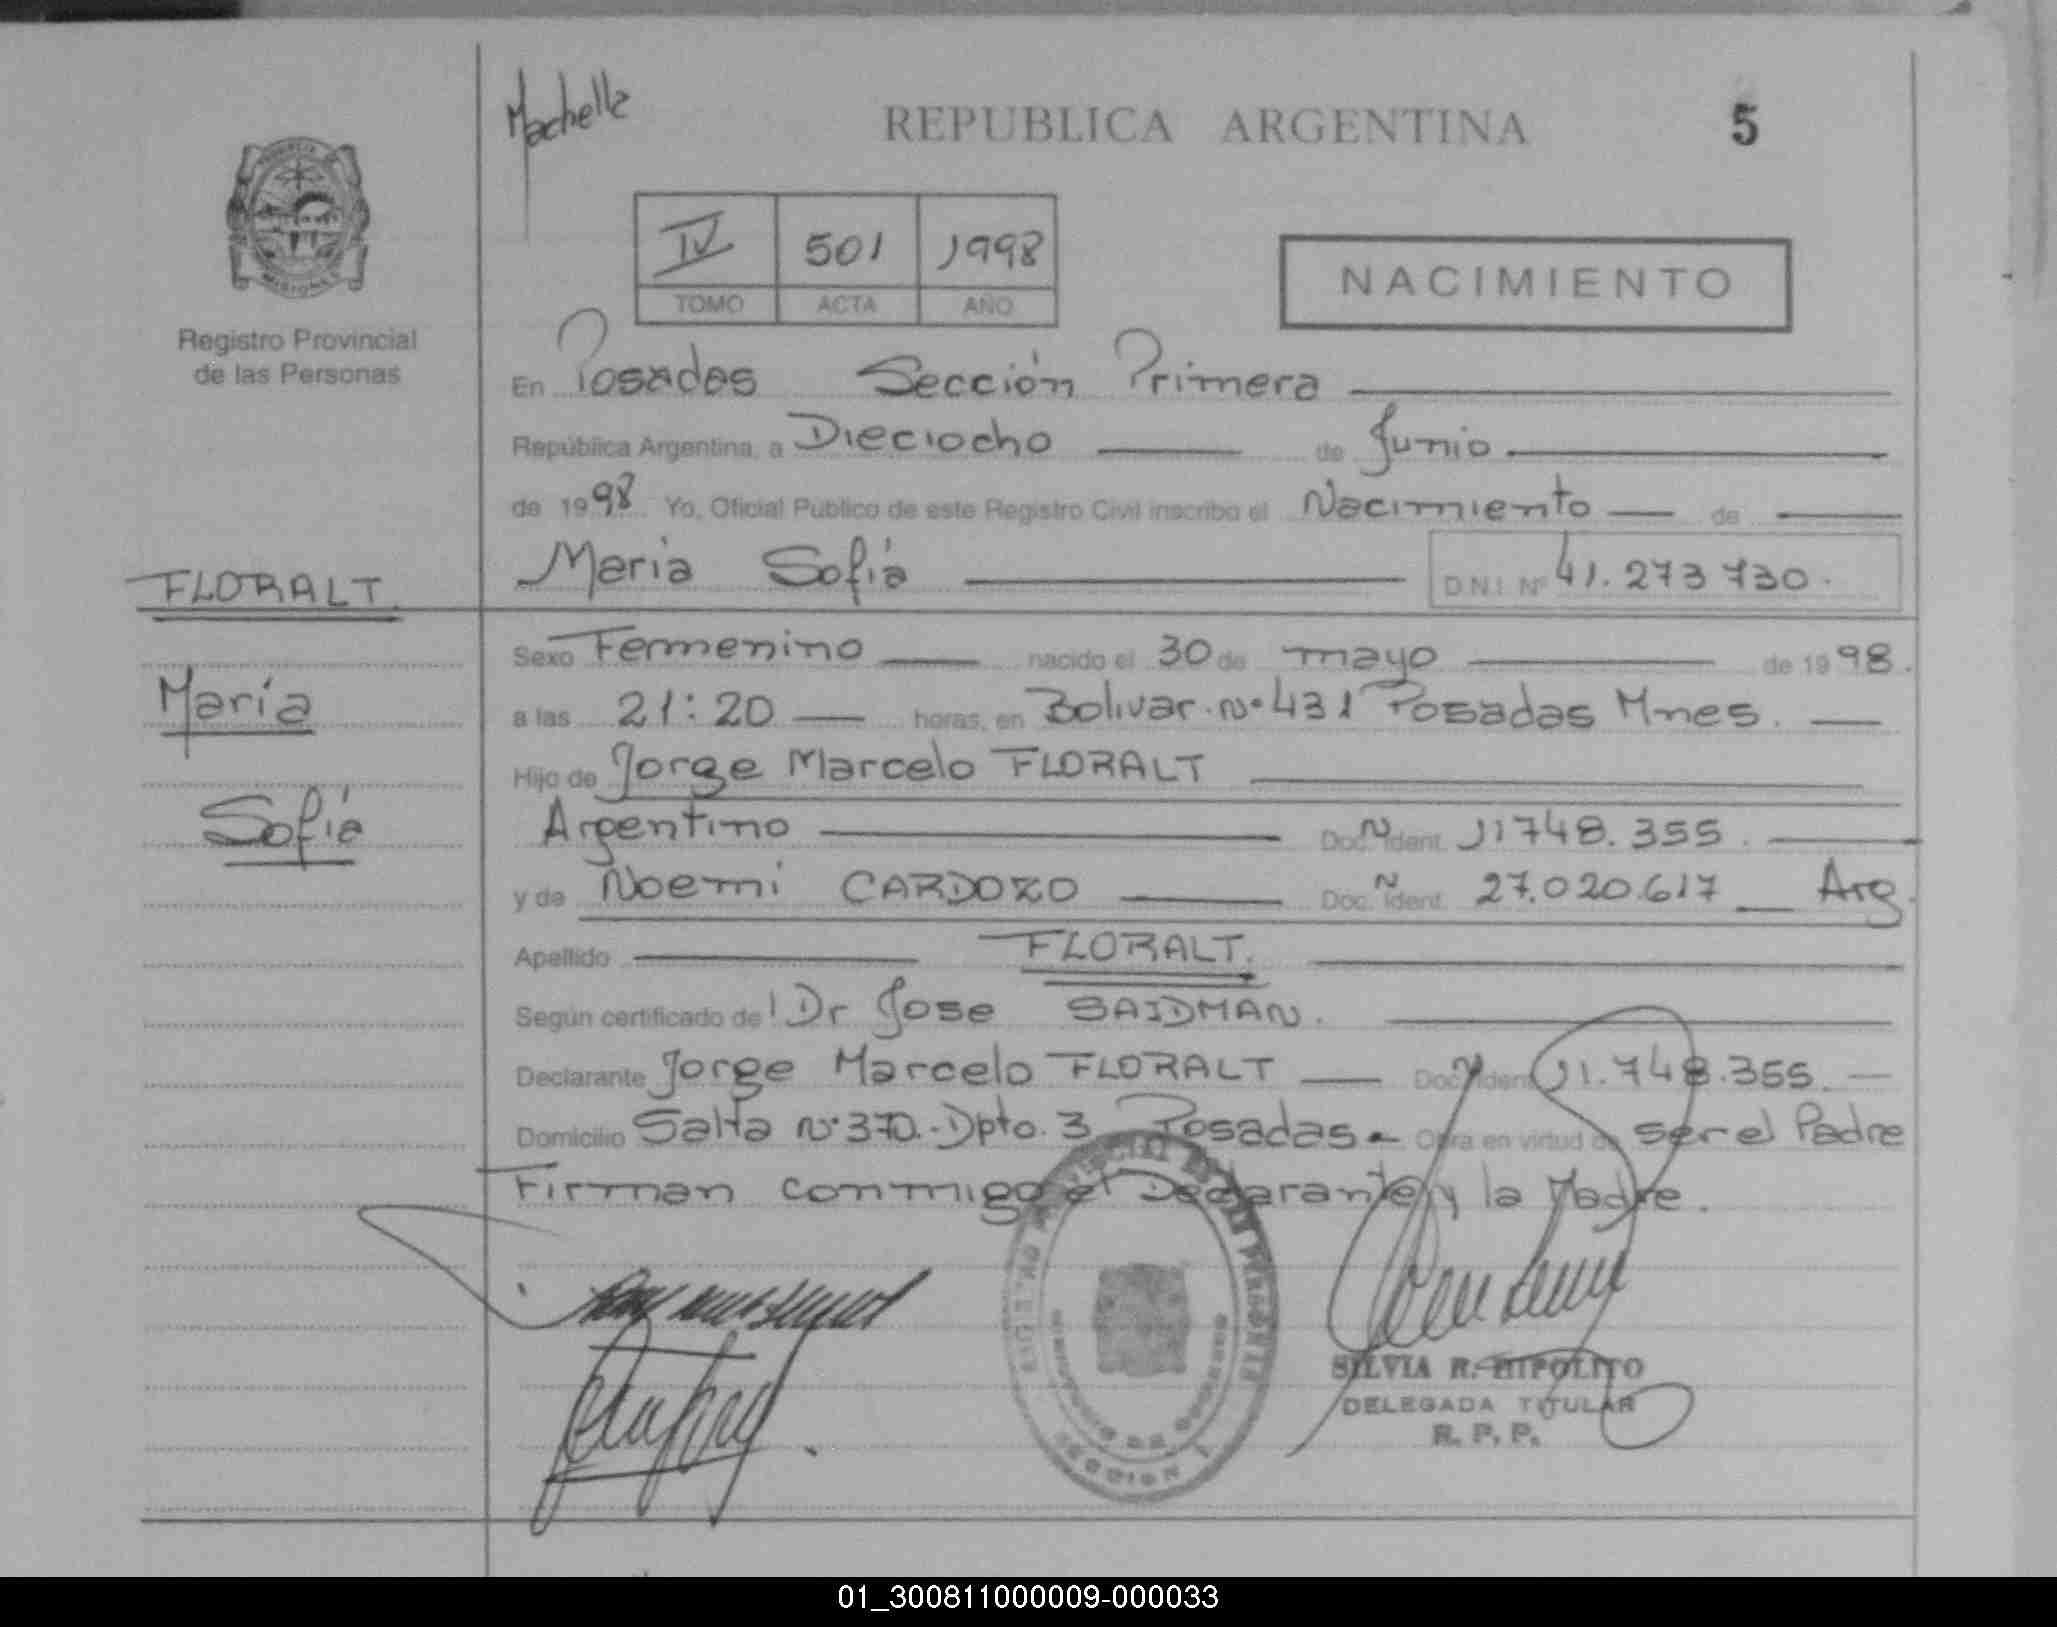 Machelle
REPUBLICA ARGENTINA 5
IV 501 1998
TOMO ACTA AÑO
NACIMIENTO
MISIONES
Registro Provincial
de las Personas
En Posadas Sección Primera
República Argentina, a Dieciocho de Junio
de 1998 Yo, Oficial Público de este Registro Civil inscribo el Nacimiento de
María Sofía D.N.I. Nº 41.273 730.
FLORALT
María
Sofía
Sexo Femenino nacido el 30 de mayo de 1998.
a las 21:20 horas, en Bolivar Nº 431 Posadas Mnes.
Hijo de Jorge Marcelo FLORALT
Argentino Doc. N Ident. 11748.355.
y de Noemi CARDOZO Doc. N Ident. 27.020.617 Arg.
Apellido FLORALT.
Según certificado del Dr Jose SAIDMAN.
Declarante Jorge Marcelo FLORALT Doc. N Ident. 11.748.355.
Domicilio Salta Nº 370.- Dpto. 3 Posadas.- Obra en virtud de ser el Padre
Firman conmigo el Declarante y la Madre.
SILVIA R. HIPOLITO
DELEGADA TITULAR
R. P. P.
SECCION 1
01_300811000009-000033